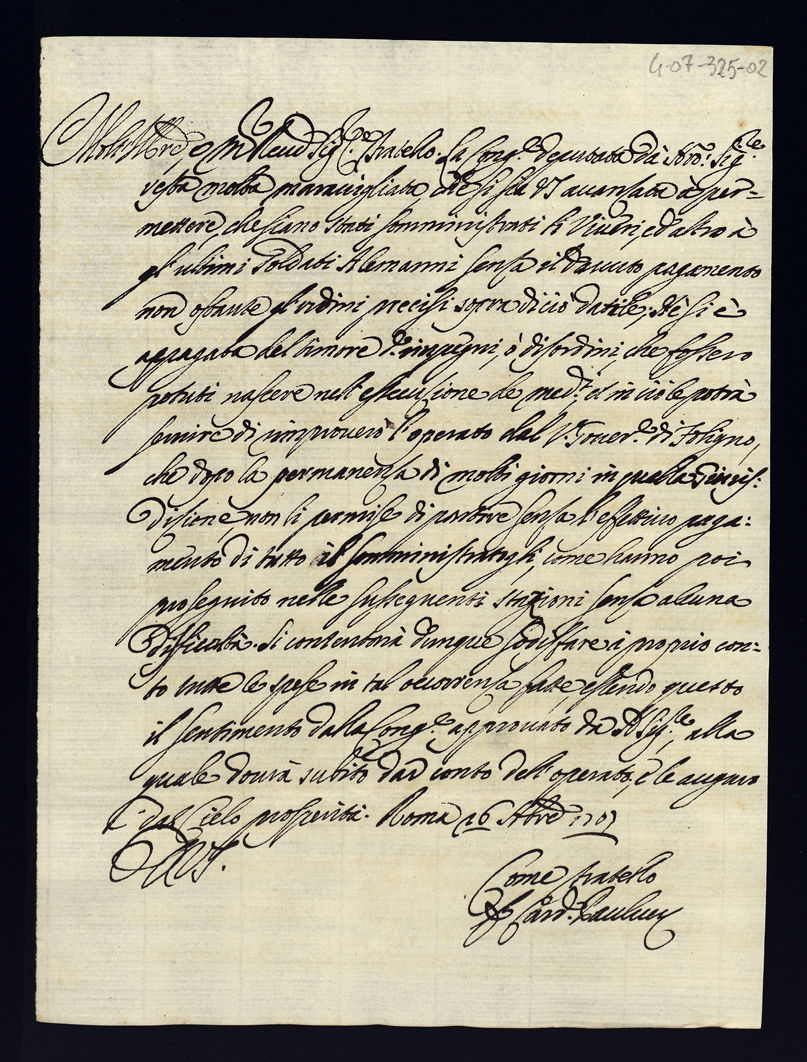 4-07-325-02
Molt' Ill.re e m.to Reud Sig.r Fratello. La Cong.ne deputata da Nro. Sig.re
resta molto maravigliata, che si sia VS avanzata à per=
mettere, che siano stati somministrati li Viveri, ed altro à
gl'ultimi Soldati Alemanni senza il dovuto pagamento
non ostante gl'ordini precisi sopra di ciò datile; Nè si è
appagata del timore d'impegni, ò disordini, che fossero
potuti nascere nell'essecuzione de med.i et in ciò le potrà
servire di improvero l'operato dal V. Gover.re di Foligno,
che dopo la permanenza di molti giorni in quella Giuris=
dizione, non li permise di partire senza l'effettivo paga=
mento di tutto il somministratogli, come hanno poi
proseguito nelle susseguenti stazioni senza alcuna
difficoltà. Si contenterà dunque sodisfare à proprio con=
to tutte le spese in tal occorrenza fatte, essendo questo
il sentimento della Cong.ne approvato da N Sig.re, alla
quale dovrà subito dar conto dell'operato, e le auguro
dal Cielo prosperità. Roma 16 Nbre 1707
Di VS.
Come Fratello
F Card. Paulucci